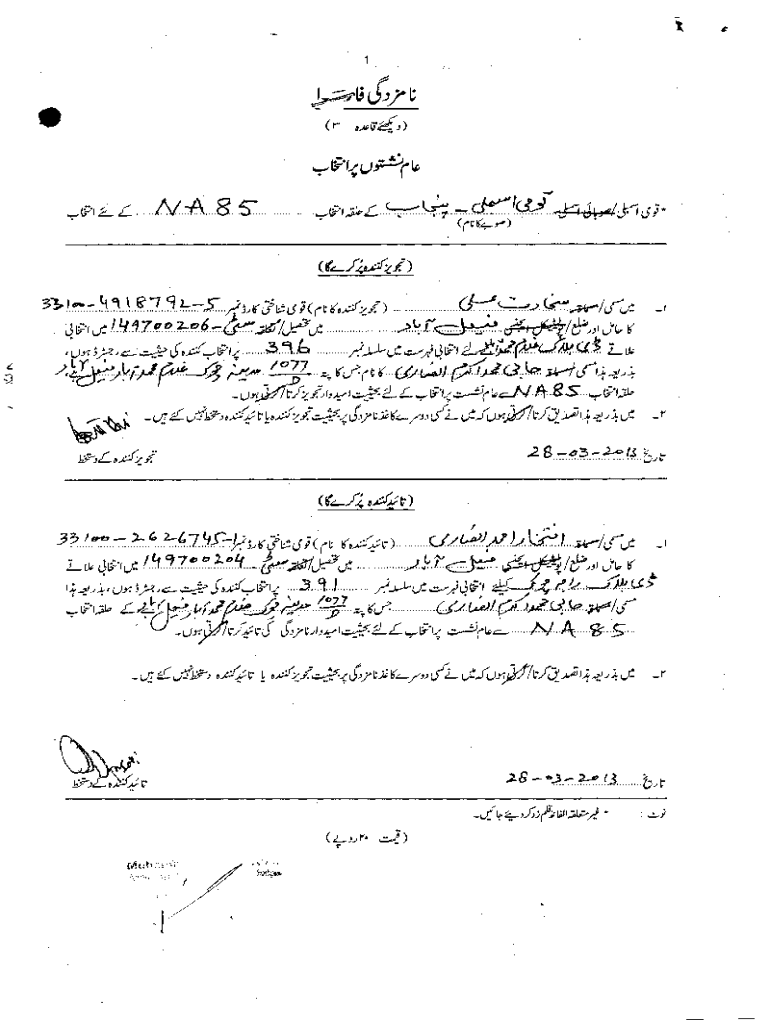 1
نامزدگی فارم
(دیکھئے قاعدہ ۳)
عام نشستوں پر انتخاب
قومی اسمبلی/صوبائی اسمبلی قومی اسمبلی - پنجاب کے حلقہ انتخاب NA 85 کے لئے انتخاب
(صوبے کا نام)
(تجویز کنندہ پُر کرے گا)
۱۔ میں مسمی/مسماۃ سخاوت علی (تجویز کنندہ کا نام) قومی شناختی کارڈ نمبر 33100-4918792-5
کا حامل اور ضلع/پولیٹیکل ایجنسی فیصل آباد میں تحصیل/تعلقہ سٹی-149700206 میں انتخابی
علاقے ڈی بلاک غلام محمد آباد کے لئے انتخابی فہرست میں سلسلہ نمبر 396 پر انتخاب کنندہ کی حیثیت سے رجسٹرڈ ہوں،
بذریعہ ہذا مسمی/مسماۃ حاجی محمد اکرم انصاری کا نام جس کا پتہ 1077/D مدینہ چوک غلام محمد آباد فیصل آباد ہے،
حلقہ انتخاب NA 85 سے عام نشست پر انتخاب کے لئے بحیثیت امیدوار تجویز کرتا/کرتی ہوں۔
۲۔ میں بذریعہ ہذا تصدیق کرتا/کرتی ہوں کہ میں نے کسی دوسرے کاغذ نامزدگی پر بحیثیت تجویز کنندہ یا تائید کنندہ دستخط نہیں کئے ہیں۔
تاریخ 28-03-2013
تجویز کنندہ کے دستخط
(تائید کنندہ پُر کرے گا)
۱۔ میں مسمی/مسماۃ افتخار احمد انصاری (تائید کنندہ کا نام) قومی شناختی کارڈ نمبر 33100-2626745-1
کا حامل اور ضلع/پولیٹیکل ایجنسی فیصل آباد میں تحصیل/تعلقہ سٹی 149700204 میں انتخابی علاقے
ڈی بلاک راجہ چوک کیلئے انتخابی فہرست میں سلسلہ نمبر 391 پر انتخاب کنندہ کی حیثیت سے رجسٹرڈ ہوں، بذریعہ ہذا
مسمی/مسماۃ حاجی محمد اکرم انصاری جس کا پتہ 1077/D مدینہ چوک غلام محمد آباد فیصل آباد ہے کے حلقہ انتخاب
NA 85 سے عام نشست پر انتخاب کے لئے بحیثیت امیدوار نامزدگی کی تائید کرتا/کرتی ہوں۔
۲۔ میں بذریعہ ہذا تصدیق کرتا/کرتی ہوں کہ میں نے کسی دوسرے کاغذ نامزدگی پر بحیثیت تجویز کنندہ یا تائید کنندہ دستخط نہیں کئے ہیں۔
تاریخ 28-03-2013
تائید کنندہ کے دستخط
نوٹ: - غیر متعلقہ الفاظ قلم زد کر دیئے جائیں۔
(قیمت ۲۰ روپے)